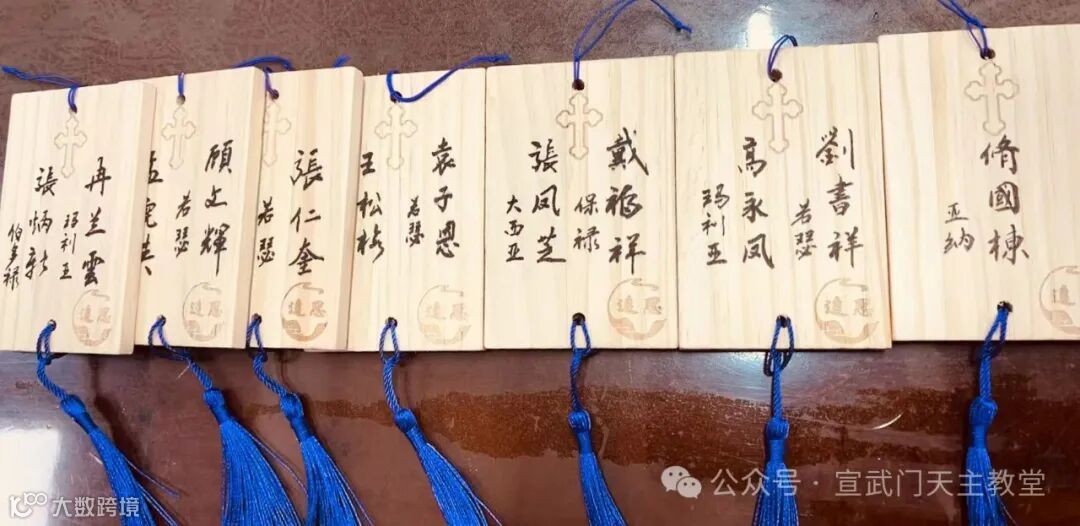 冉芝雲
玛利亚
張炳新
伯多禄
顾文輝
若瑟
張仁奎
若瑟
袁子恩
若瑟
王松梅
戴福祥
保禄
張凤芝
大西亚
劉書祥
若瑟
高永凤
玛利亚
脩國棟
亚纳
追思
追思
追思
追思
追思
追思
追
大数跨境
公众号·宣武门天主教堂